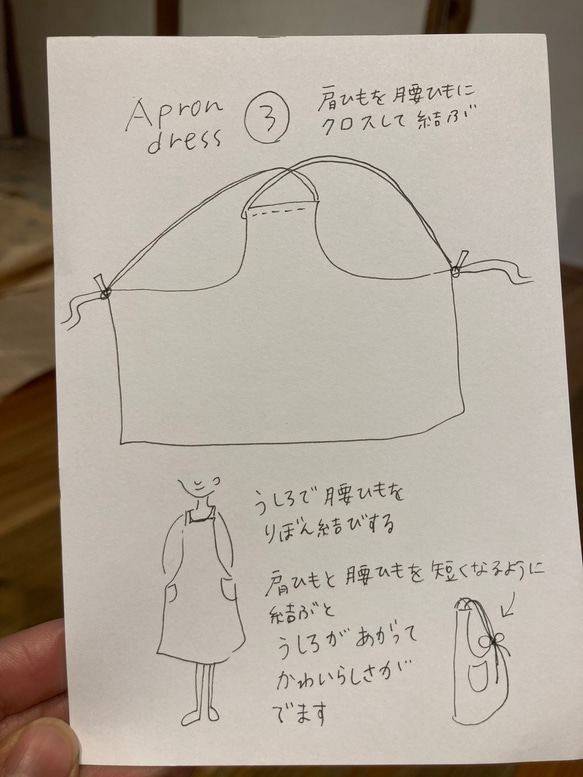 Apron
dress
3
肩ひもを腰ひもに
クロスして結ぶ
うしろで腰ひもを
りぼん結びする
肩ひもと腰ひもを短くなるように
結ぶと
うしろがあがって
かわいらしさが
でます